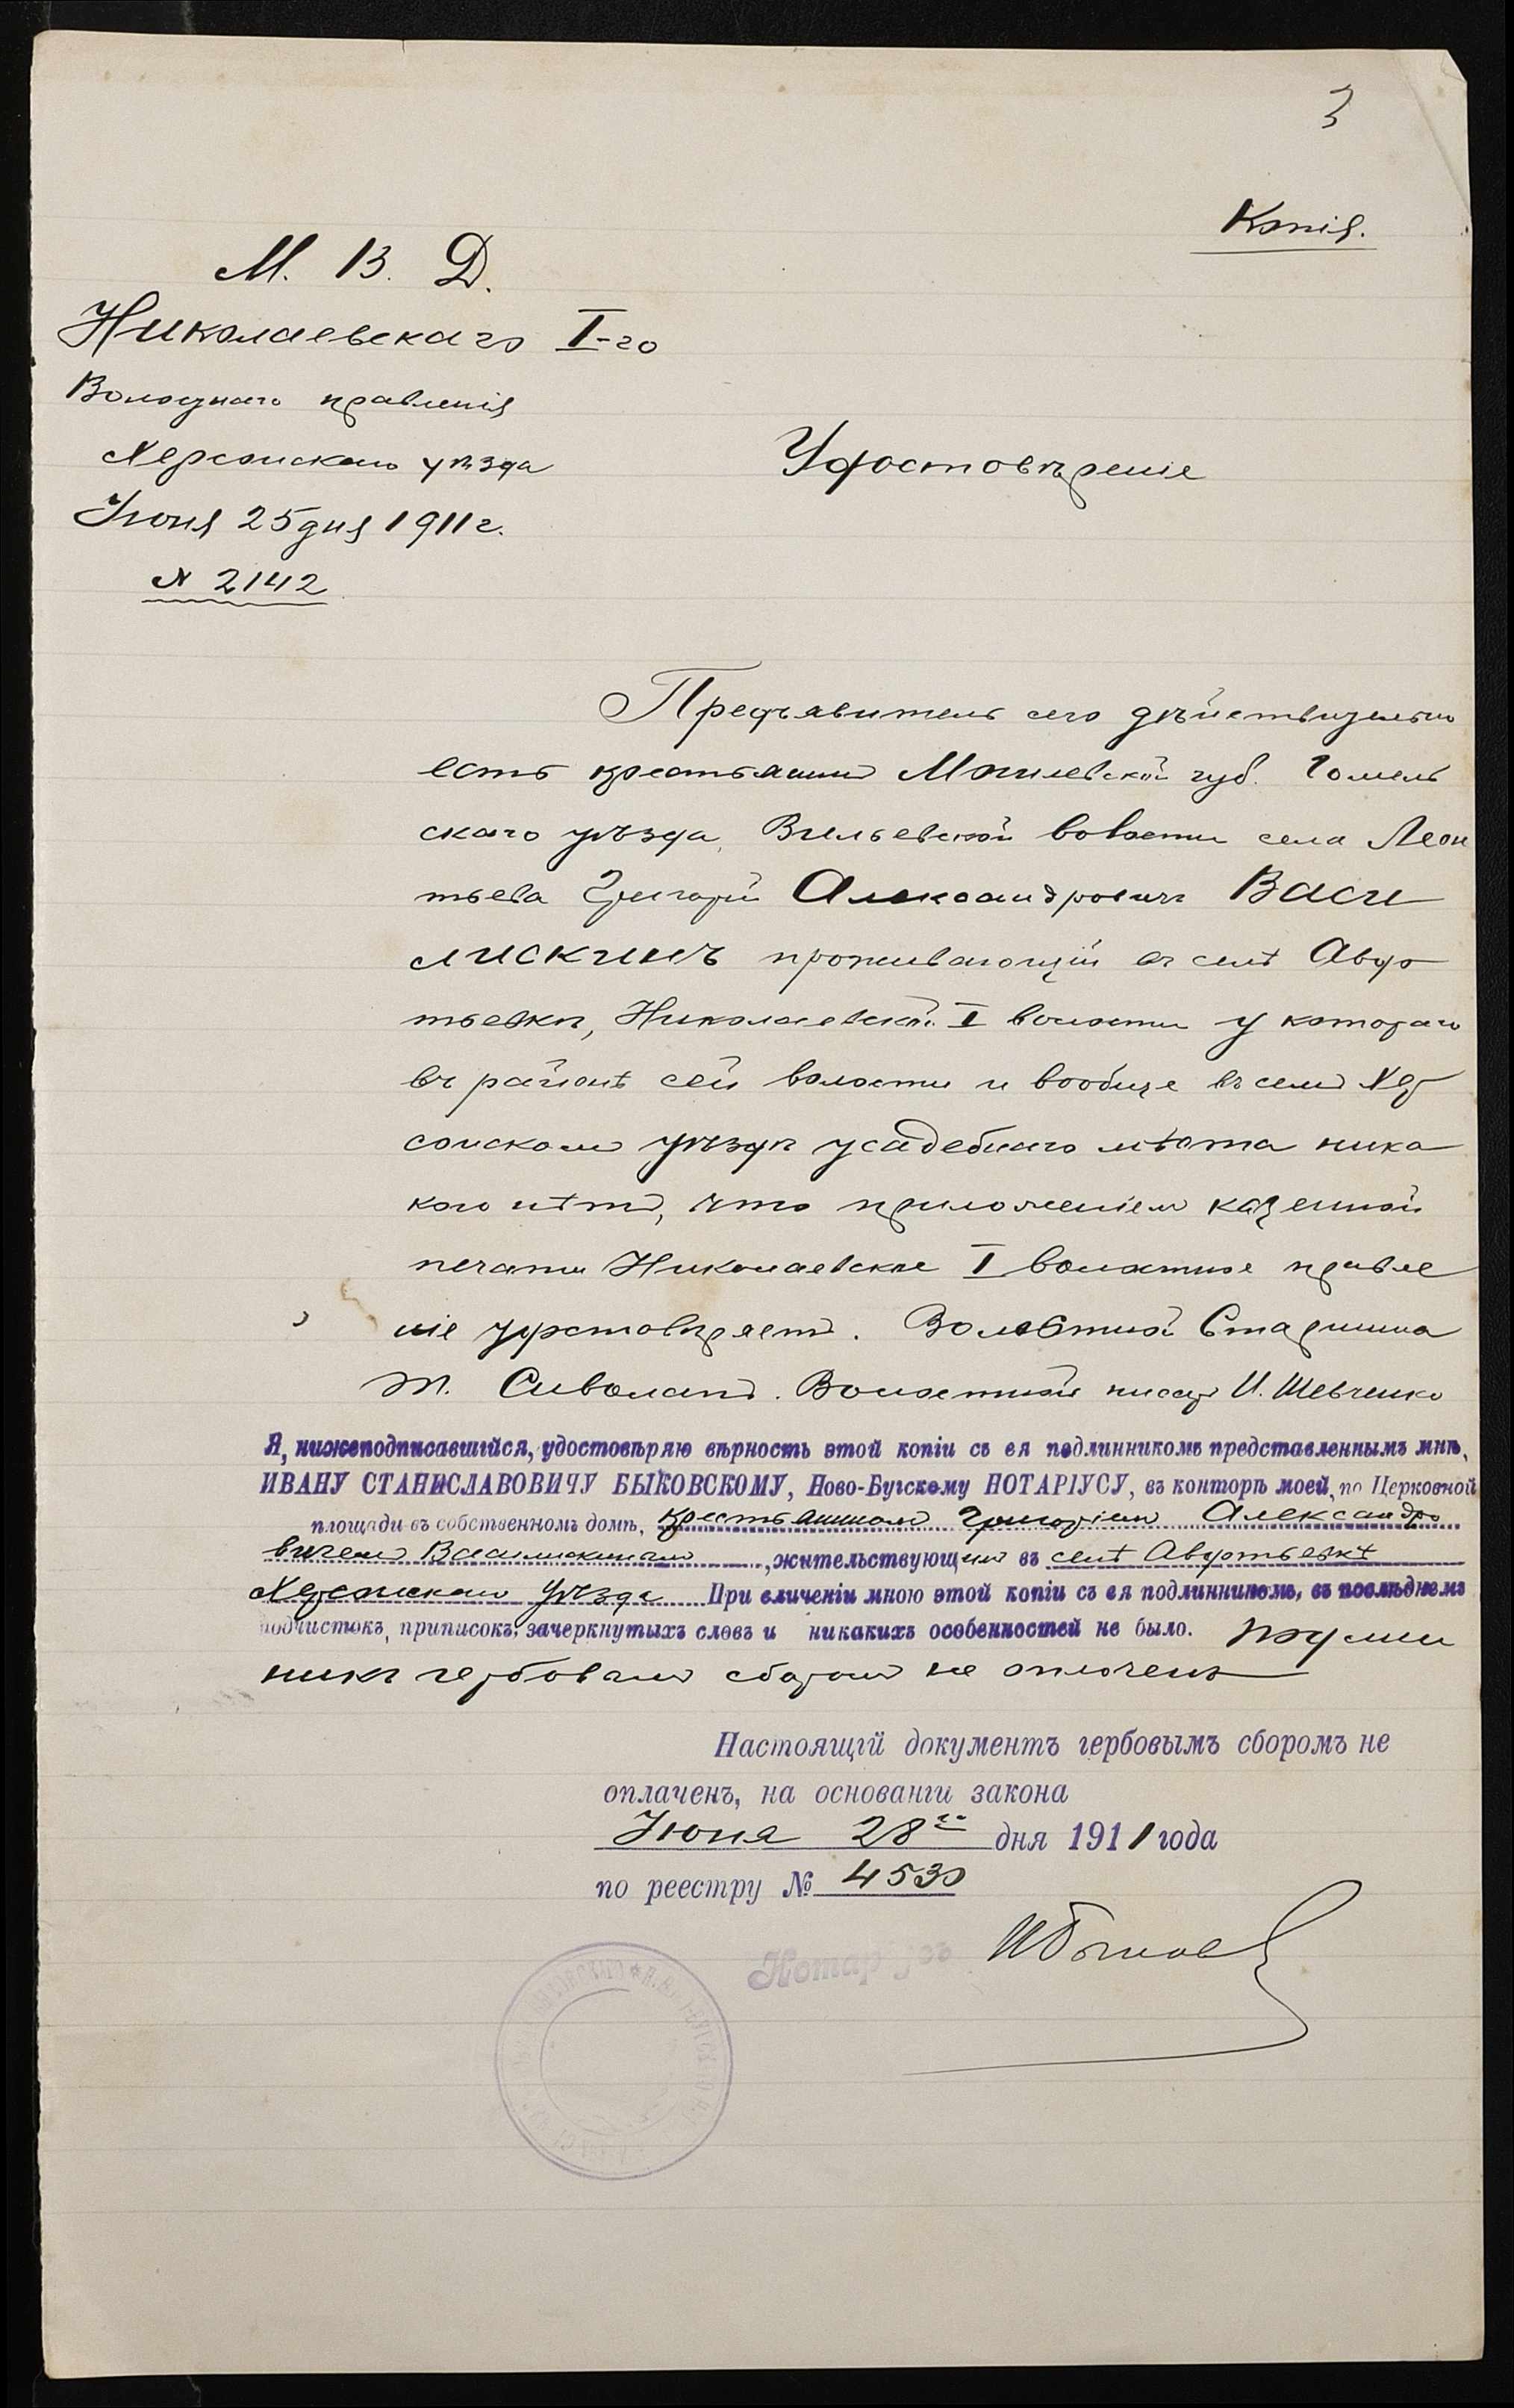 3
Копія.
М. В. Д.
Николаевскаго I-го
Волостнаго правленія
Херсонскаго уѣзда
Іюня 25 дня 1911 г.
№ 2142
Удостовѣреніе
Предъявитель сего дѣйствительно
есть крестьянинъ Могилевской губ. Гомель
скаго уѣзда, волости села Леон
тьева Григорій Александровичъ Васи
лискинъ проживающій въ селѣ Авдо
тьевкѣ, Николаевской I волости у котораго
въ районѣ сей волости и вообще въ семъ Хер
сонскомъ уѣздѣ усадебнаго мѣста ника
кого нѣтъ, что приложеніемъ казенной
печати Николаевское I волостное правле
ніе удостовѣряетъ. Волостной Старшина
Т. Сиволапъ. Волостной писарь И. Шевченко
Я, нижеподписавшійся, удостовѣряю вѣрность этой копіи съ ея подлинникомъ представленнымъ мнѣ,
ИВАНУ СТАНИСЛАВОВИЧУ БЫКОВСКОМУ, Ново-Бугскому НОТАРІУСУ, въ конторѣ моей, по Церковной
площади въ собственномъ домѣ, крестьяниномъ Григоріемъ Александро
вичемъ Василискинымъ, жительствующимъ въ селѣ Авдотьевкѣ
Херсонскаго уѣзда При сличеніи мною этой копіи съ ея подлинникомъ, въ послѣднемъ
подчистокъ, приписокъ, зачеркнутыхъ словъ и никакихъ особенностей не было. Подлин
никъ гербовымъ сборомъ не оплоченъ
Настоящій документъ гербовымъ сборомъ не
оплаченъ, на основаніи закона
Іюня 28 дня 1911 года
по реестру № 4530
Нотаріусъ ИБыковс